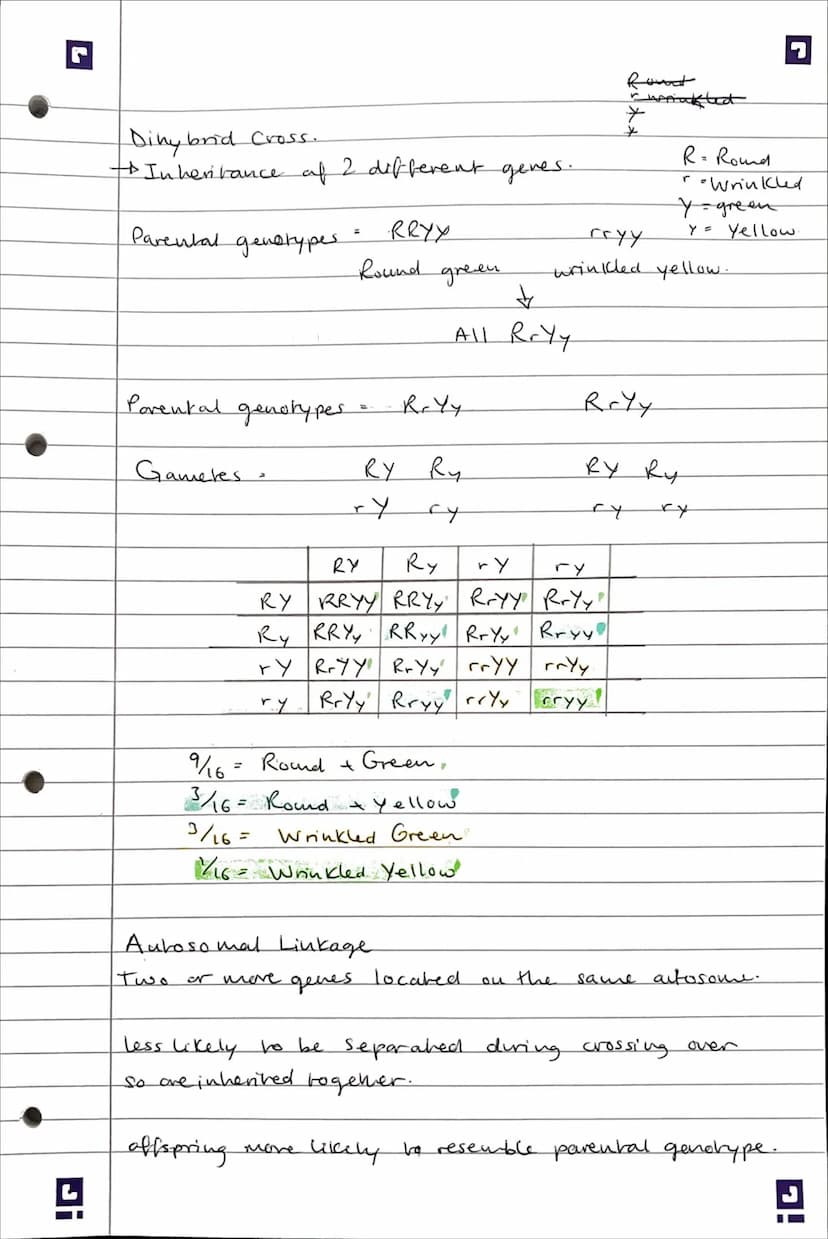 Round
r wrinkled
Y
Y
Dihybrid Cross.
→ Inheritance of 2 different genes.
R = Round
r = Wrinkled
Y = green
y = Yellow
Parental genotypes = RRYY rryy
Round green wrinkled yellow.
↓
All RrYy
Parental genotypes = RrYy RrYy
Gametes = RY Ry RY Ry
rY ry ry ry
RY Ry rY ry
RY RRYY RRYy RrYY RrYy
Ry RRYy RRyy RrYy Rryy
rY RrYY RrYy rrYY rrYy
ry RrYy Rryy rrYy rryy
9/16 = Round + Green.
3/16 = Round + Yellow
3/16 = Wrinkled Green
1/16 = Wrinkled Yellow
Autosomal Linkage
Two or more genes located on the same autosome.
less likely to be separated during crossing over
so are inherited together.
offspring more likely to resemble parental genotype.